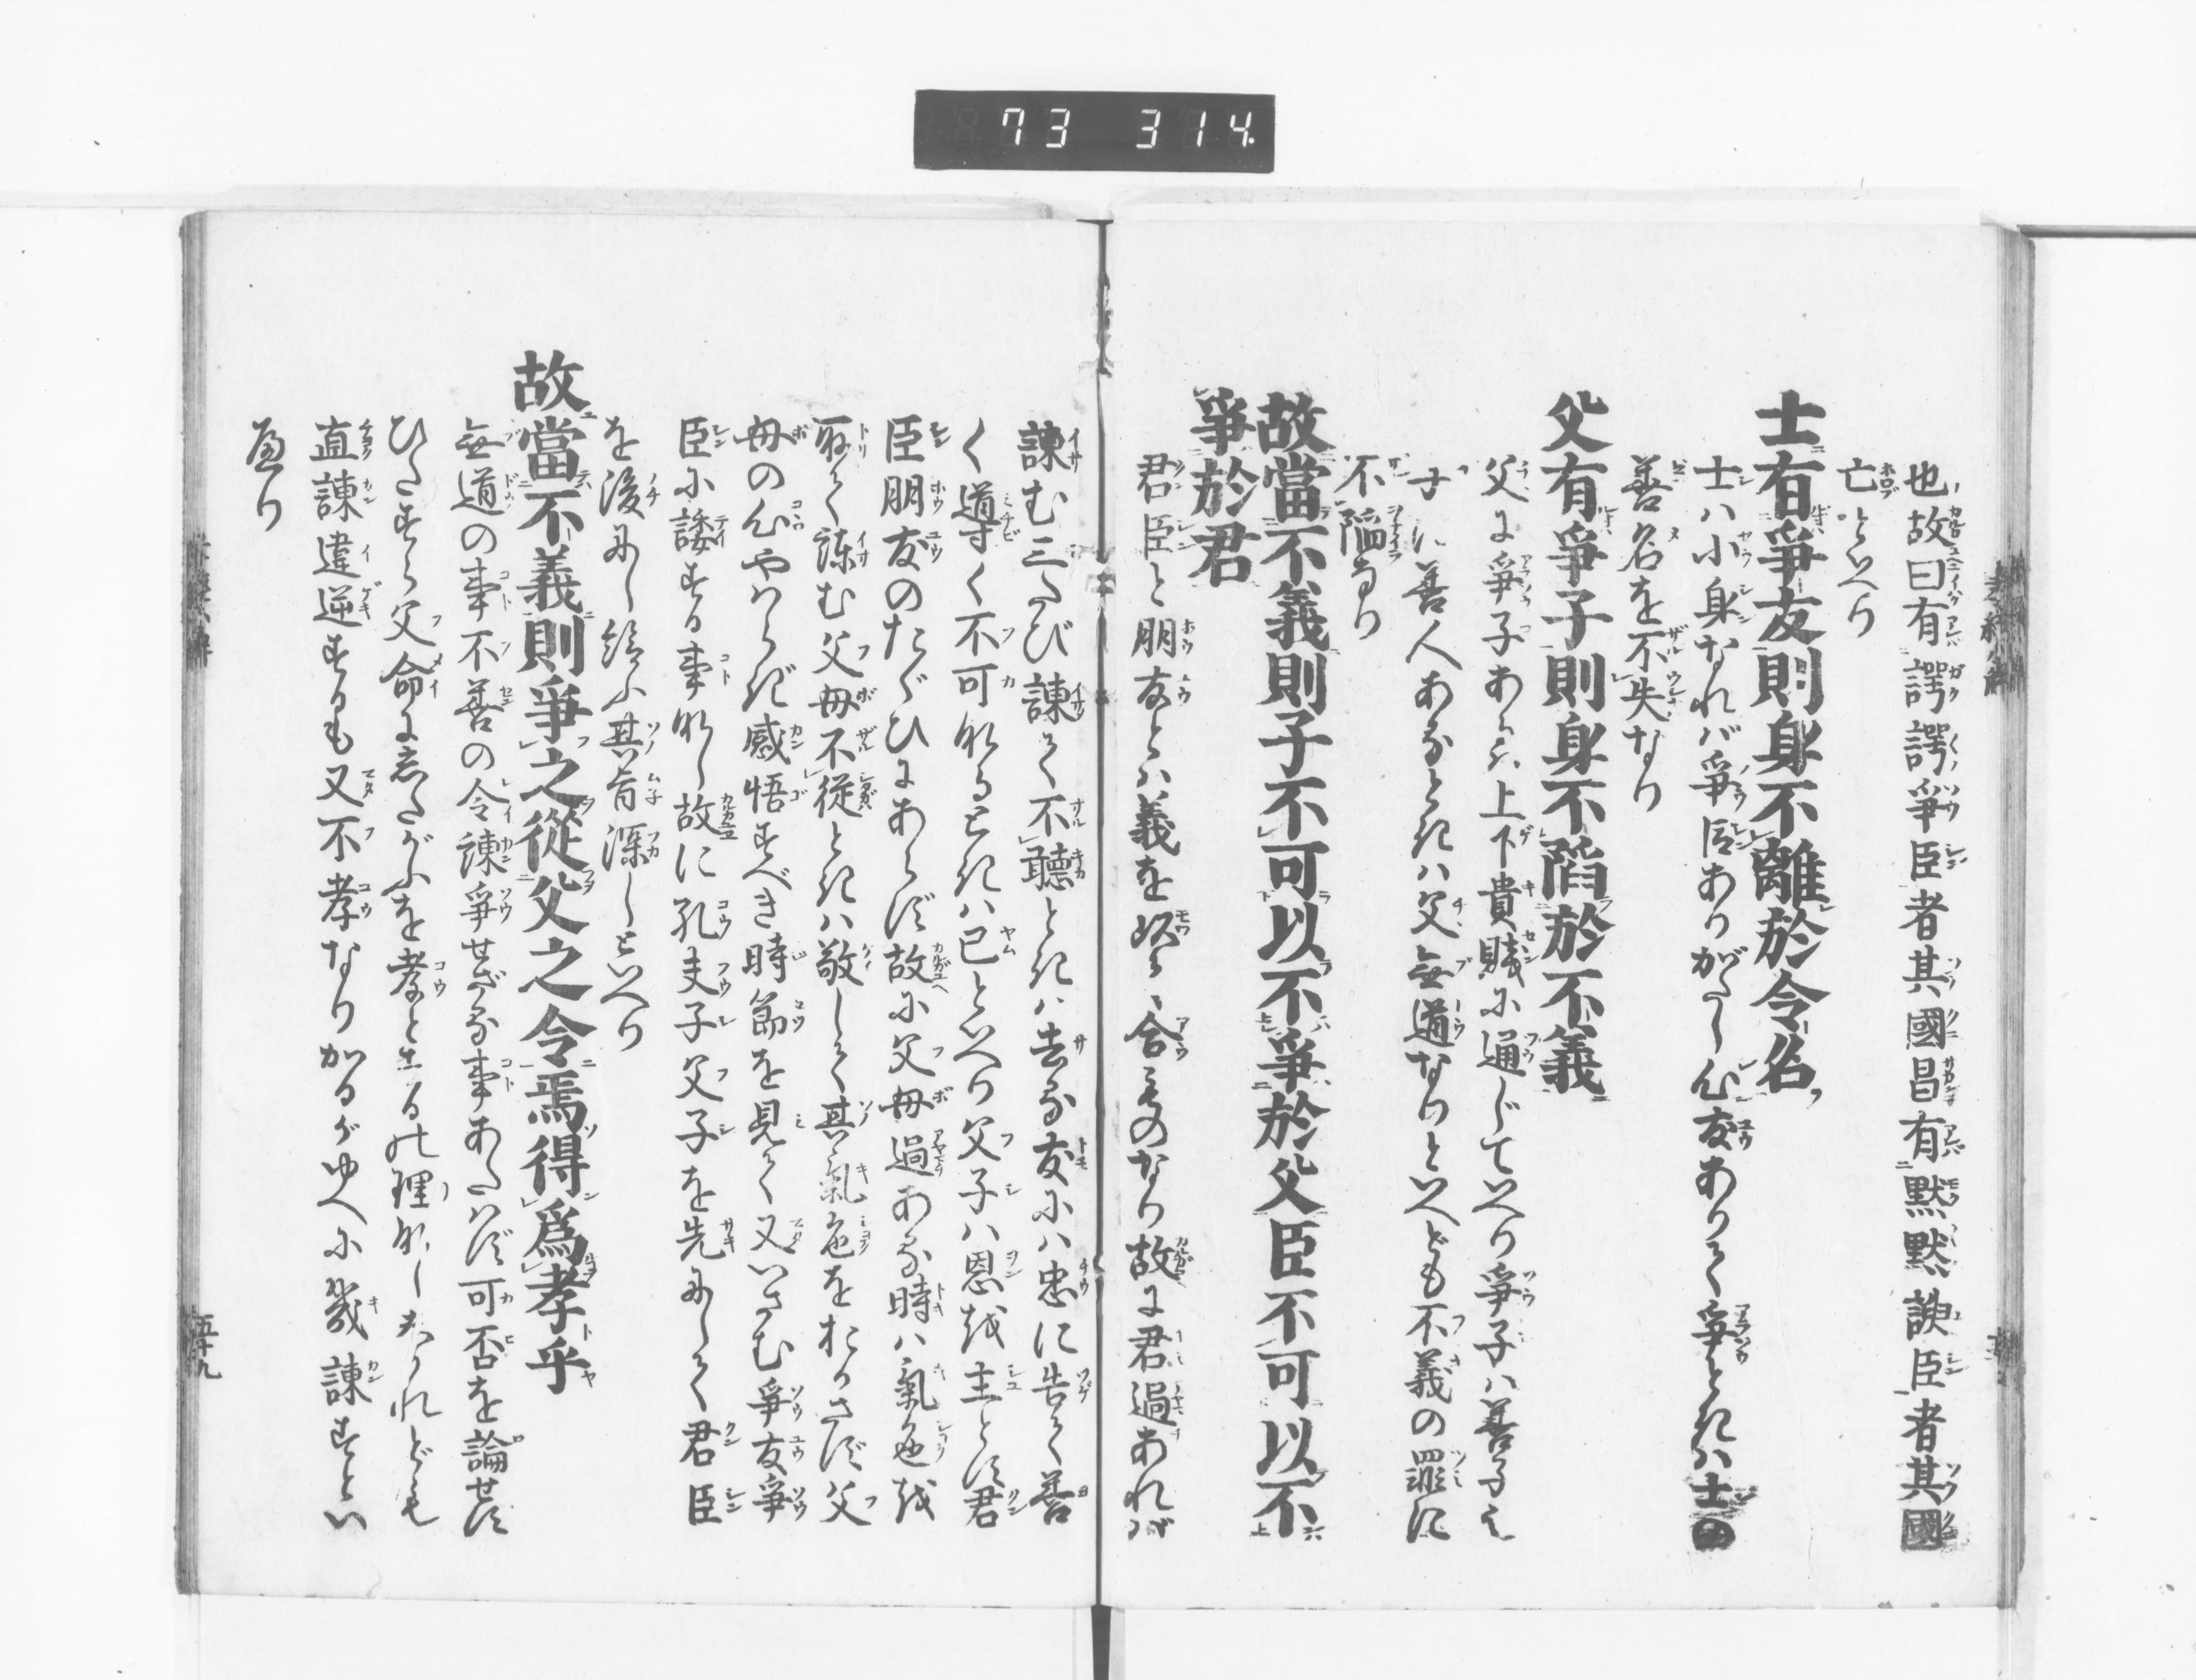 73 314.
也故曰有諤諤爭臣者其國昌有默默諛臣者其國
亡といへり
士有爭友則身不離於令名
士ハ小身なれバ爭臣ありがたし友ありて爭ときハ士の
善名を不失なり
父有爭子則身不陷於不義
父に爭子あらハ上下貴賤に通じていへり爭子ハ善子
子に善人あるときハ父無道なりといへども不義の罪に
不陷なり
故當不義則子不可以不爭於父臣不可以不
爭於君
君臣と朋友とハ義を以合ものなり故に君過あれバ
諫む三たび諫て不聽ときハ去る友にハ忠に告て善
く導く不可なるときハ已といへり父子ハ恩を主とす君
臣朋友のたぐひにあらず故に父母過ある時ハ氣色を
取て諫む父母不從ときハ敬して其氣色をおかさず父
母の心やハらぎ感悟すべき時節を見て又いさむ爭友爭
臣に諉する事なし故に孔夫子父子を先にして君臣
を後にし給ふ其旨深しといへり
故當不義則爭之從父之令焉得爲孝乎
無道の事不善の令諫爭せざる事あたハず可否を論せす
ひたすら父命にしたがふを孝とする理なししかれども
直諫違逆するも又不孝なりかるがゆへに幾諫すとい
へり
五十九